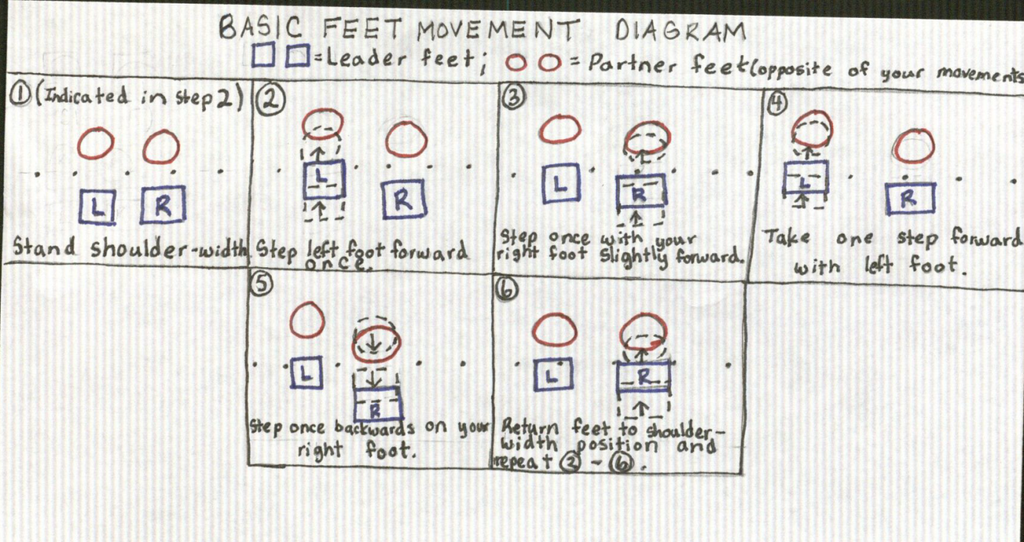 BASIC FEET MOVEMENT DIAGRAM
= Leader feet; = Partner feet (opposite of your movements
① (Indicated in step 2)
L R
Stand shoulder-width
②
L R
Step left foot forward
once.
③
L R
Step once with your
right foot slightly forward.
④
L R
Take one step forward
with left foot.
⑤
L
R
Step once backwards on your
right foot.
⑥
L R
Return feet to shoulder-
width position and
repeat ② - ⑥.